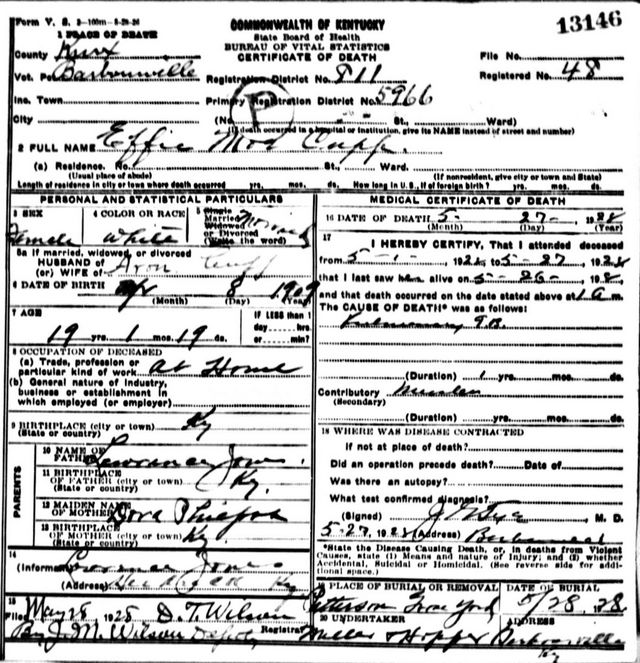 Form V. S. 2-100m-8-28-26
COMMONWEALTH OF KENTUCKY
13146
1 PLACE OF DEATH
State Board of Health
BUREAU OF VITAL STATISTICS
CERTIFICATE OF DEATH
County Knox
File No.
Vot. Pct. Barbourville
Registration District No. 811
Registered No. 48
Inc. Town
Primary Registration District No. 5966
City
(No. St., Ward)
P
(If death occurred in a hospital or institution, give its NAME instead of street and number)
2 FULL NAME Effie Cupp
(a) Residence. No. St., Ward.
(Usual place of abode) (If nonresident, give city or town and State)
Length of residence in city or town where death occurred yrs. mos. ds. How long in U. S., if of foreign birth? yrs. mos. ds.
PERSONAL AND STATISTICAL PARTICULARS
3 SEX Female
4 COLOR OR RACE White
5 Single Married Widowed or Divorced (Write the word) Married
5a If married, widowed, or divorced
HUSBAND of
(or) WIFE of Aron Cupp
6 DATE OF BIRTH 8 1909
(Month) (Day) (Year)
7 AGE
19 yrs. 1 mos. 19 ds.
IF LESS than 1 day ... hrs. or ... min?
8 OCCUPATION OF DECEASED
(a) Trade, profession or
particular kind of work at Home
(b) General nature of industry,
business or establishment in
which employed (or employer)
9 BIRTHPLACE (city or town) Ky
(State or country)
PARENTS
10 NAME OF FATHER Lawrance Jones
11 BIRTHPLACE OF FATHER (city or town) Ky.
(State or country)
12 MAIDEN NAME OF MOTHER
13 BIRTHPLACE OF MOTHER (city or town) Ky.
(State or country)
14
(Informant) Jones
(Address) Ky
15
Filed May 28 1928 D. T. Wilson
Registrar
By J. M. Wilson
MEDICAL CERTIFICATE OF DEATH
16 DATE OF DEATH 5- 27- 1928
(Month) (Day) (Year)
17
I HEREBY CERTIFY, That I attended deceased
from 5-1- 1928 to 5-27 1928
that I last saw her alive on 5-26- 1928,
and that death occurred on the date stated above at 1 a m.
The CAUSE OF DEATH* was as follows:
Pulmonary T.B.
(Duration) 1 yrs. mos. ds.
Contributory Measles
(Secondary)
(Duration) yrs. mos. ds.
18 WHERE WAS DISEASE CONTRACTED
If not at place of death?
Did an operation precede death? Date of
Was there an autopsy?
What test confirmed diagnosis?
(Signed) M. D.
5-27, 1928 (Address)
*State the Disease Causing Death, or, in deaths from Violent
Causes, state (1) Means and nature of Injury; and (2) whether
Accidental, Suicidal or Homicidal. (See reverse side for addi-
tional space.)
19 PLACE OF BURIAL OR REMOVAL Patterson Grave Yard
DATE OF BURIAL 5/28. 28.
20 UNDERTAKER Miller & Hopper
ADDRESS Barbourville Ky